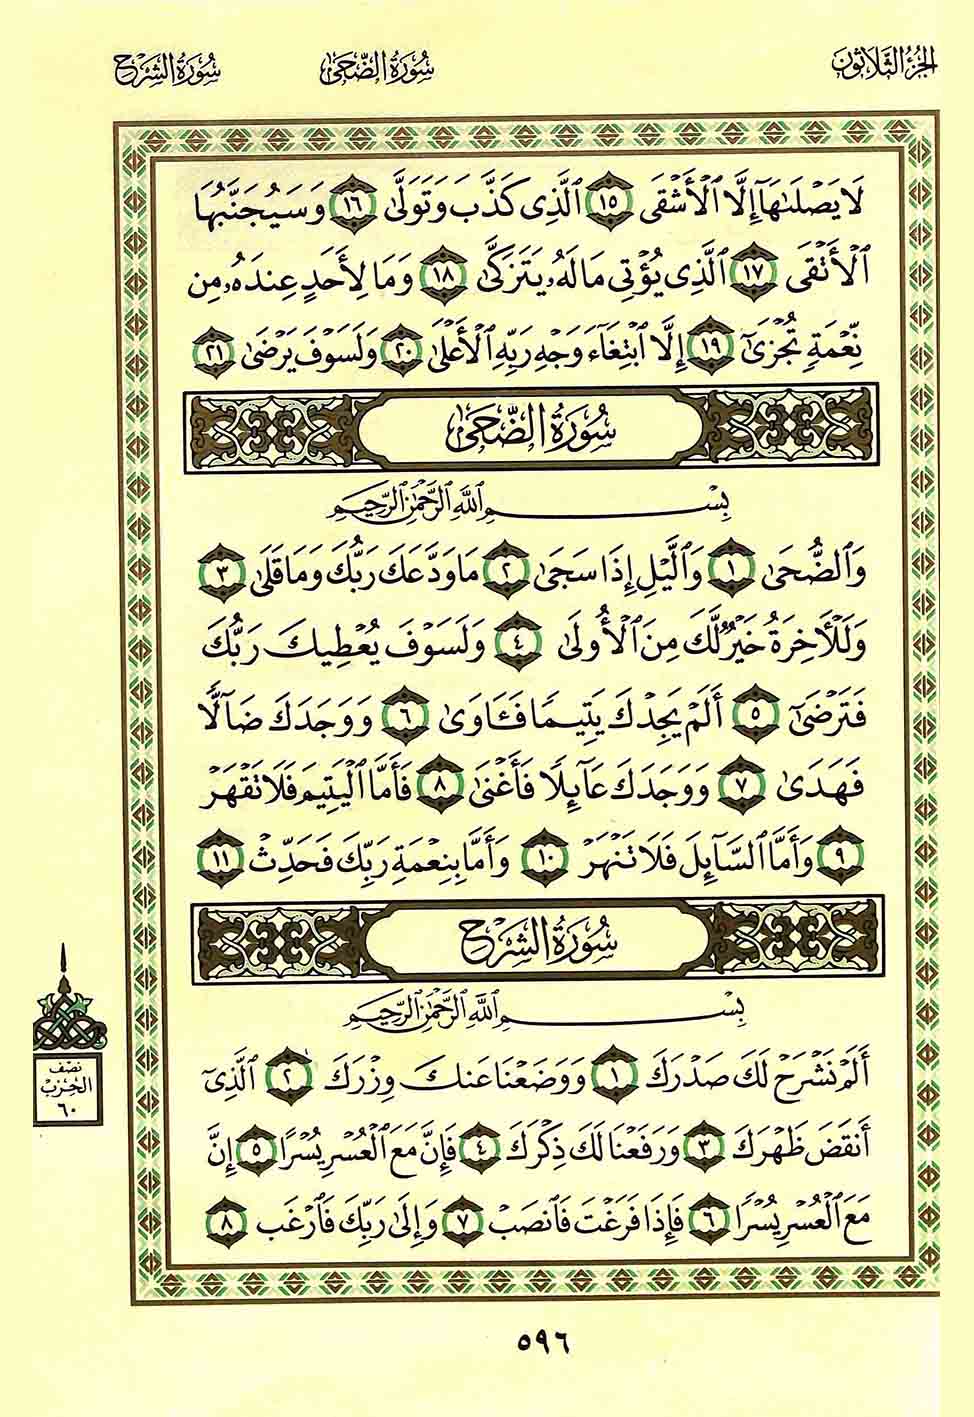 الجزء الثلاثون
سورة الضحى
سورة الشرح
لَا يَصْلَىٰهَآ إِلَّا ٱلْأَشْقَى ١٥ ٱلَّذِى كَذَّبَ وَتَوَلَّىٰ ١٦ وَسَيُجَنَّبُهَا
ٱلْأَتْقَى ١٧ ٱلَّذِى يُؤْتِى مَالَهُۥ يَتَزَكَّىٰ ١٨ وَمَا لِأَحَدٍ عِندَهُۥ مِن
نِّعْمَةٍ تُجْزَىٰٓ ١٩ إِلَّا ٱبْتِغَآءَ وَجْهِ رَبِّهِ ٱلْأَعْلَىٰ ٢٠ وَلَسَوْفَ يَرْضَىٰ ٢١
سُورَةُ الضُّحَىٰ
بِسْمِ ٱللَّهِ ٱلرَّحْمَٰنِ ٱلرَّحِيمِ
وَٱلضُّحَىٰ ١ وَٱلَّيْلِ إِذَا سَجَىٰ ٢ مَا وَدَّعَكَ رَبُّكَ وَمَا قَلَىٰ ٣
وَلَلْءَاخِرَةُ خَيْرٌ لَّكَ مِنَ ٱلْأُولَىٰ ٤ وَلَسَوْفَ يُعْطِيكَ رَبُّكَ
فَتَرْضَىٰٓ ٥ أَلَمْ يَجِدْكَ يَتِيمًا فَـَٔاوَىٰ ٦ وَوَجَدَكَ ضَآلًّا
فَهَدَىٰ ٧ وَوَجَدَكَ عَآئِلًا فَأَغْنَىٰ ٨ فَأَمَّا ٱلْيَتِيمَ فَلَا تَقْهَرْ
٩ وَأَمَّا ٱلسَّآئِلَ فَلَا تَنْهَرْ ١٠ وَأَمَّا بِنِعْمَةِ رَبِّكَ فَحَدِّثْ ١١
سُورَةُ الشَّرْحِ
بِسْمِ ٱللَّهِ ٱلرَّحْمَٰنِ ٱلرَّحِيمِ
أَلَمْ نَشْرَحْ لَكَ صَدْرَكَ ١ وَوَضَعْنَا عَنكَ وِزْرَكَ ٢ ٱلَّذِىٓ
أَنقَضَ ظَهْرَكَ ٣ وَرَفَعْنَا لَكَ ذِكْرَكَ ٤ فَإِنَّ مَعَ ٱلْعُسْرِ يُسْرًا ٥ إِنَّ
مَعَ ٱلْعُسْرِ يُسْرًا ٦ فَإِذَا فَرَغْتَ فَٱنصَبْ ٧ وَإِلَىٰ رَبِّكَ فَٱرْغَب ٨
نصف
الحزب
٦٠
٥٩٦